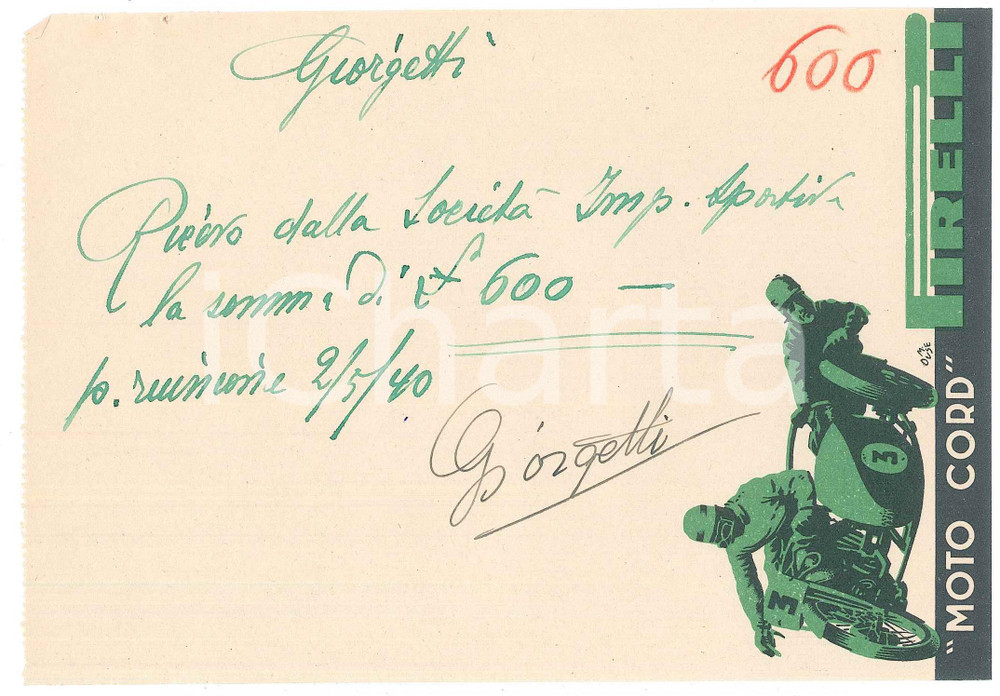 Giorgetti
600
Ricevo dalla Società Imp. Sportiva
la somma di £ 600 —
p. riunione 2/5/40
Giorgetti
PIRELLI
"MOTO CORD"
3
3
iCharta